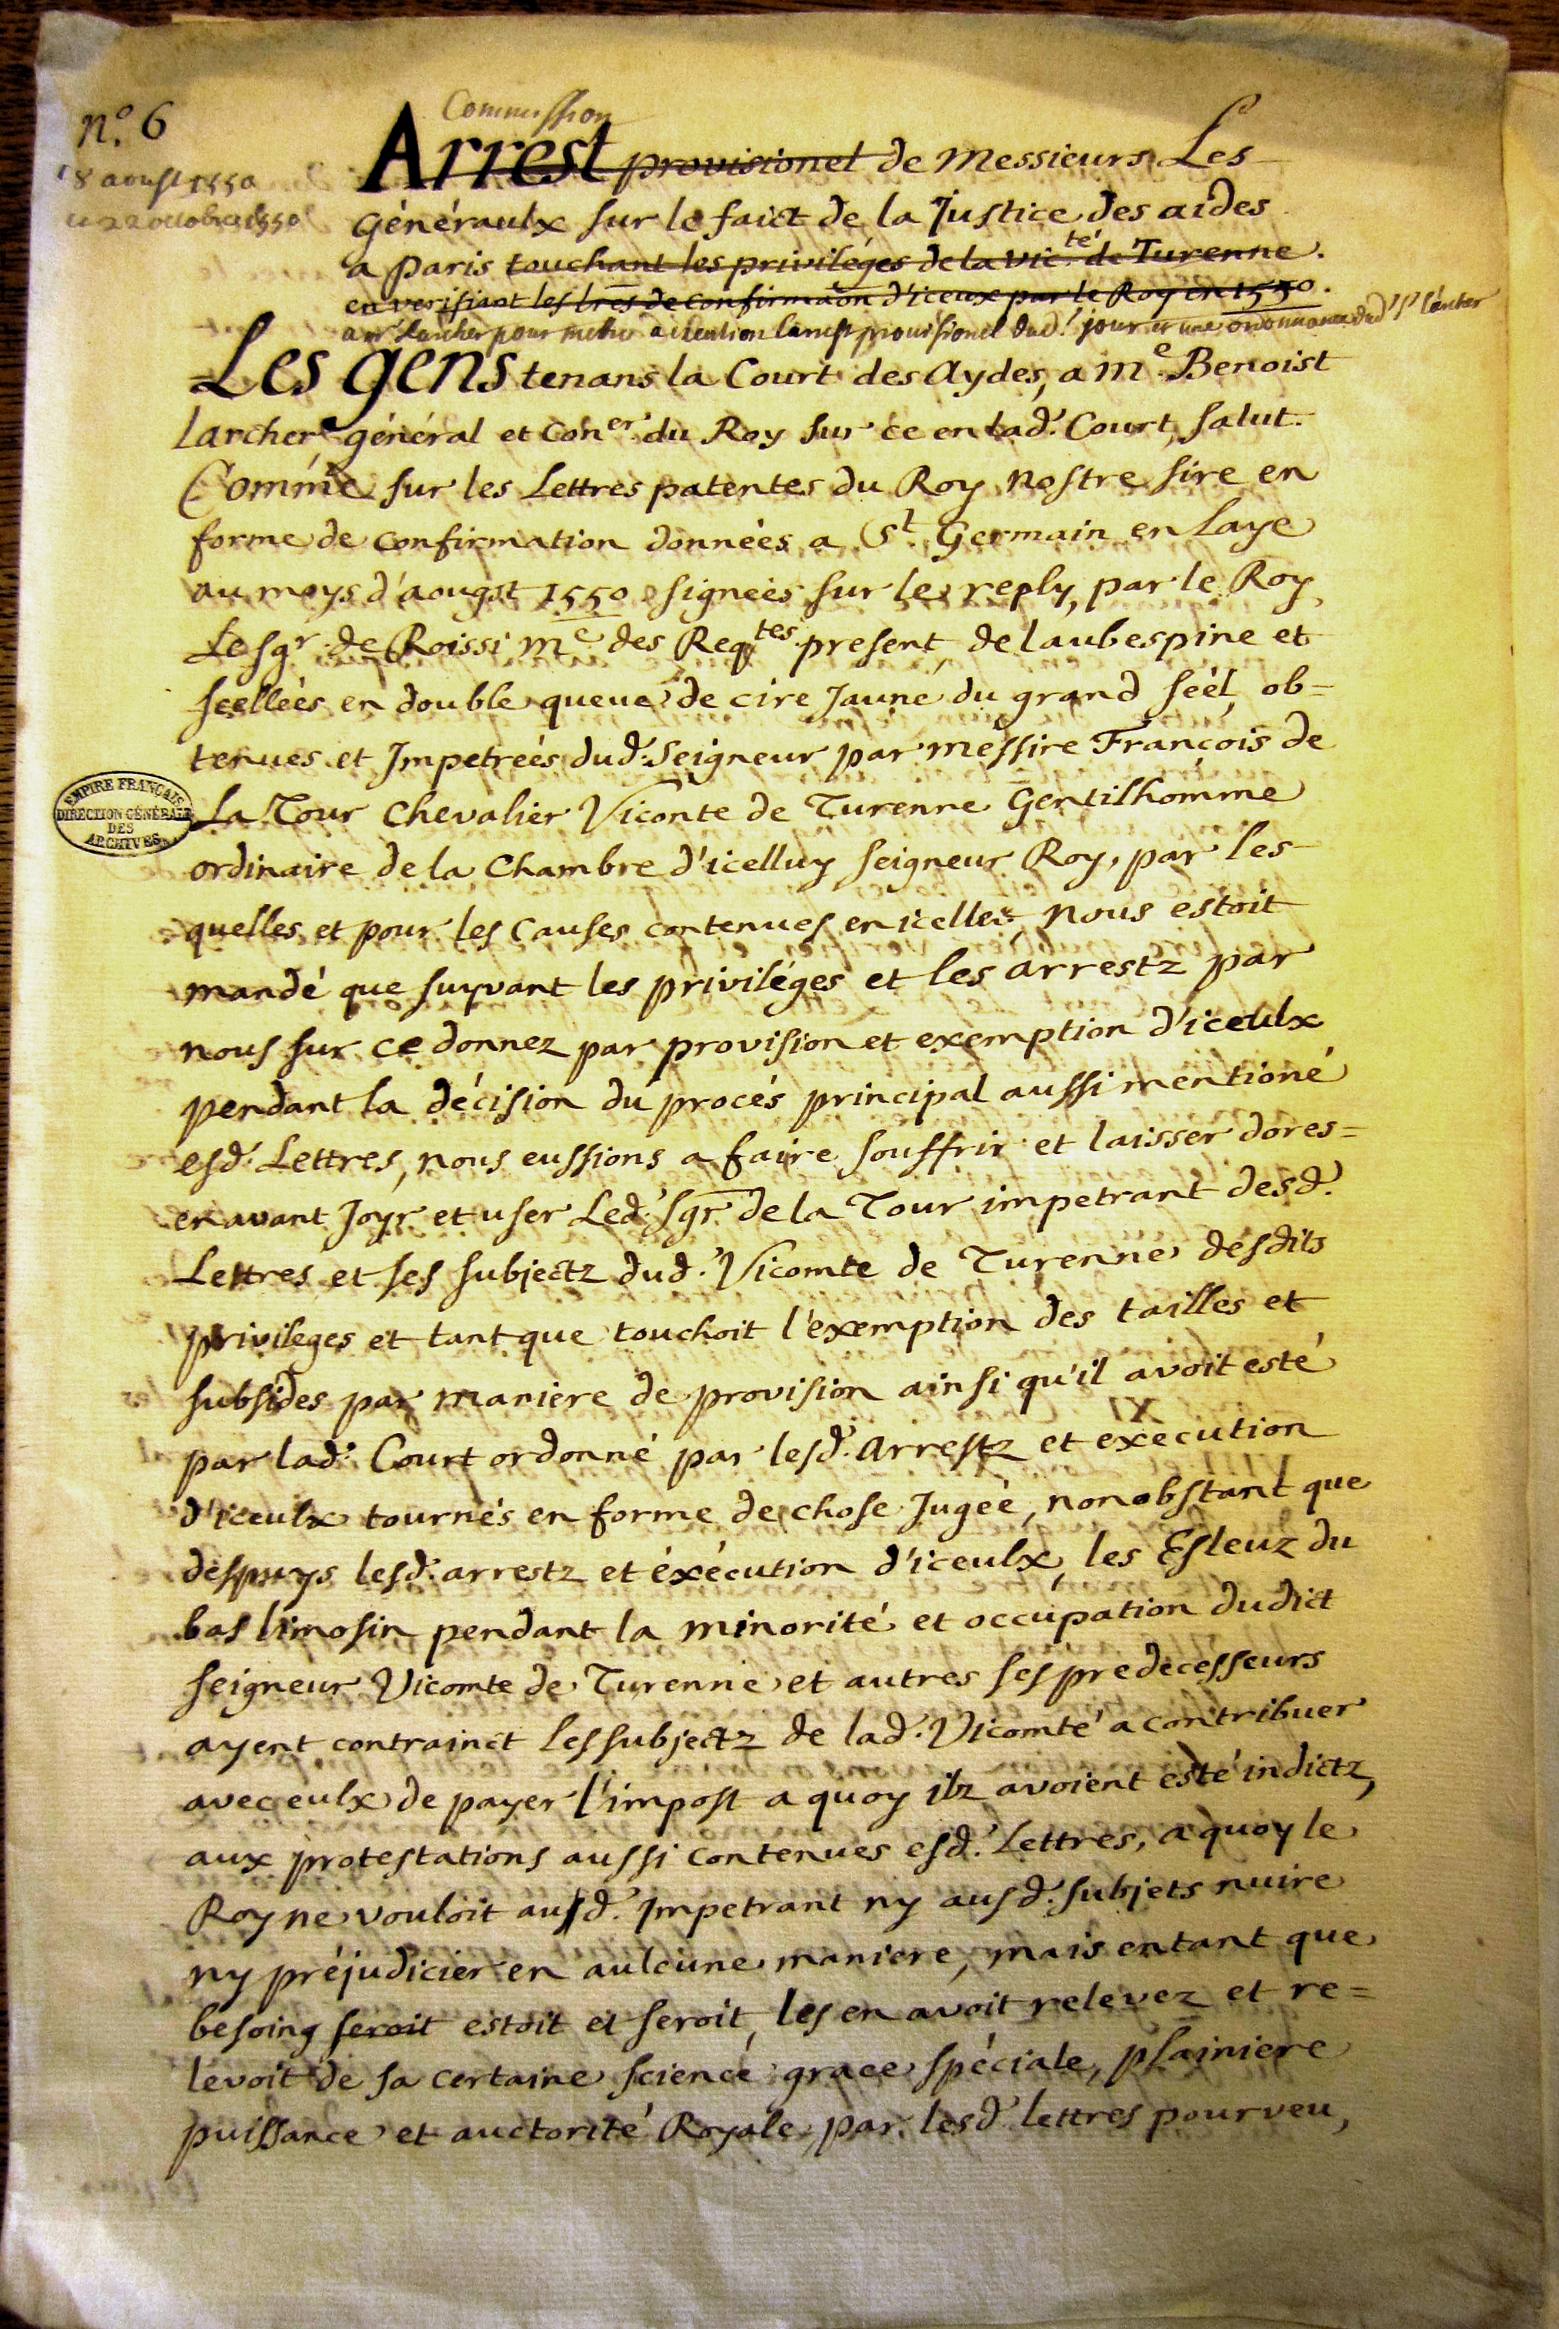 n.° 6
Commission
18 aoust 1550
et 22 octobre 1550
Arrest provisionel de Messieurs Les
Généraulx sur le faict de la Justice des aides
a Paris touchant les priviléges de la vic.té de Turenne.
en verifiant les lres de confirmaõn d'iceux par le Roy en 1550.
a mr. Larcher pour mettre a execution larrest provisionel dud. jour et une ordonnance dud. Sr. Larcher
Les gens tenans la Court des Aydes, a Me. Benoist
Larcher, général et Coner. du Roy sur ce en lad. Court, salut.
Comme sur les Lettres patentes du Roy nostre sire en
forme de confirmation données a St. Germain en Laye
au moys d'aougst 1550 signées sur le reply, par le Roy,
Le sgr. de Roissi me. des Reqtes. present, de laubespine et
scellées en double queue de cire Jaune du grand séel, ob=
tenues et Jmpetrées dud. Seigneur par messire François de
La Tour Chevalier Viconte de Turenne Gentilhomme
ordinaire de la Chambre d'icelluy seigneur Roy, par les
quelles et pour les causes contenues en icelles, nous estoit
mandé que suyvant les priviléges et les arrestz par
nous sur ce donnez par provision et exemption d'iceulx
pendant la décision du procés principal aussi mentioné
esd. Lettres, nous eussions a faire souffrir et laisser dores=
en avant Joyr et user Led. sgr. de la Tour impetrant desd.
Lettres et ses subjectz dud. Vicomte de Turenne desdits
privileges et tant que touchoit l'exemption des tailles et
subsides par maniere de provision ainsi qu'il avoit esté
par lad. Court ordonné par lesd. arrestz et exécution
d'iceulx tournés en forme de chose Jugée, nonobstant que
despuys lesd. arrestz et éxécution d'iceulx, les Esleuz du
bas limosin pendant la minorité et occupation dudict
seigneur Vicomte de Turenne et autres ses predecesseurs
ayent contrainct les subjectz de lad. Vicomté a contribuer
avec eulx de payer l'impost a quoy ilz avoient esté indictz,
aux protestations aussi contenues esd. Lettres, a quoy le
Roy ne vouloit aud. Jmpetrant ny ausd. subjets nuire
ny préjudicier en aulcune maniere, mais entant que
besoing seroit estoit et seroit, les en avoit relevez et re=
levoit de sa certaine science grace spéciale, plainiere
puissance et auctorité Royale, par lesd. lettres pourveu,
EMPIRE FRANÇAIS
DIRECTION GÉNÉRALE
DES
ARCHIVES